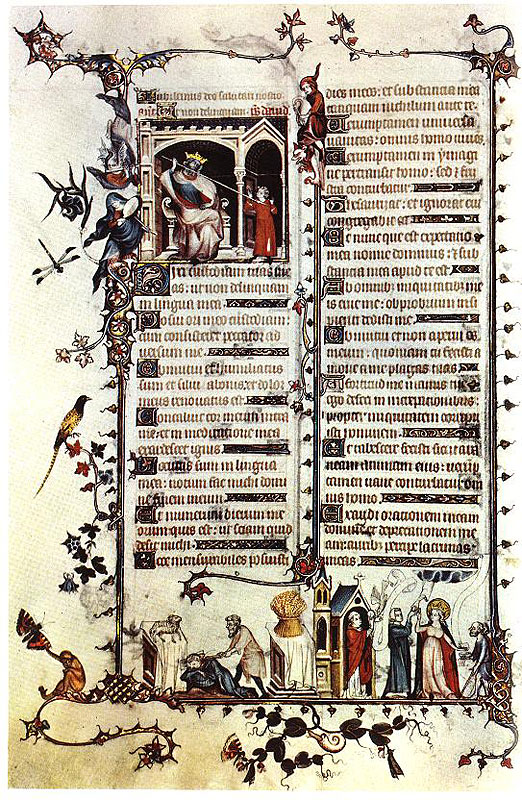 deo salutari nostro
non delinquam. ps david
Dixi custodiam vias me
as: ut non delinquam
in lingua mea.
Posui ori meo custodiam:
cum consisteret peccator ad
versum me.
Obmutui et humiliatus
sum et silui a bonis: et dolor
meus renovatus est.
Concaluit cor meum intra
me: et in meditatione mea
exardescet ignis.
Locutus sum in lingua
mea: notum fac michi domi
ne finem meum.
Et numerum dierum me
orum quis est: ut sciam quid
desit michi.
Ecce mensurabiles posuisti
dies meos: et substancia mea
tanquam nichilum ante te.
Verumptamen universa
vanitas: omnis homo vivens.
Verumptamen in ymagi
ne pertransit homo: sed et frus
tra conturbatur.
Thesaurizat: et ignorat cui
congregabit ea.
Et nunc que est expectatio
mea nonne dominus: et sub
stancia mea apud te est.
Ab omnibus iniquitatibus me
is erue me: obprobrium insi
pienti dedisti me.
Obmutui et non aperui os
meum: quoniam tu fecisti a
move a me plagas tuas.
A fortitudine manus tue e
go defeci in increpationibus:
propter iniquitatem corripu
isti hominem.
Et tabescere fecisti sicut ara
neam animam eius: verum
tamen vane conturbatur om
nis homo.
Exaudi orationem meam
domine et deprecationem me
am: auribus percipe lacrimas
meas.